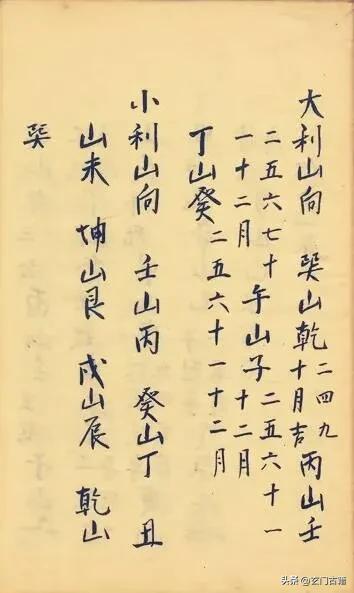 大利山向 巽山乾二四九十月吉丙山壬
二五六七十一十二月午山子二五六十一十二月
丁山癸二五六十一十二月
小利山向 壬山丙 癸山丁 丑
山未 坤山艮 戌山辰 乾山
巽
头条 @玄门古籍